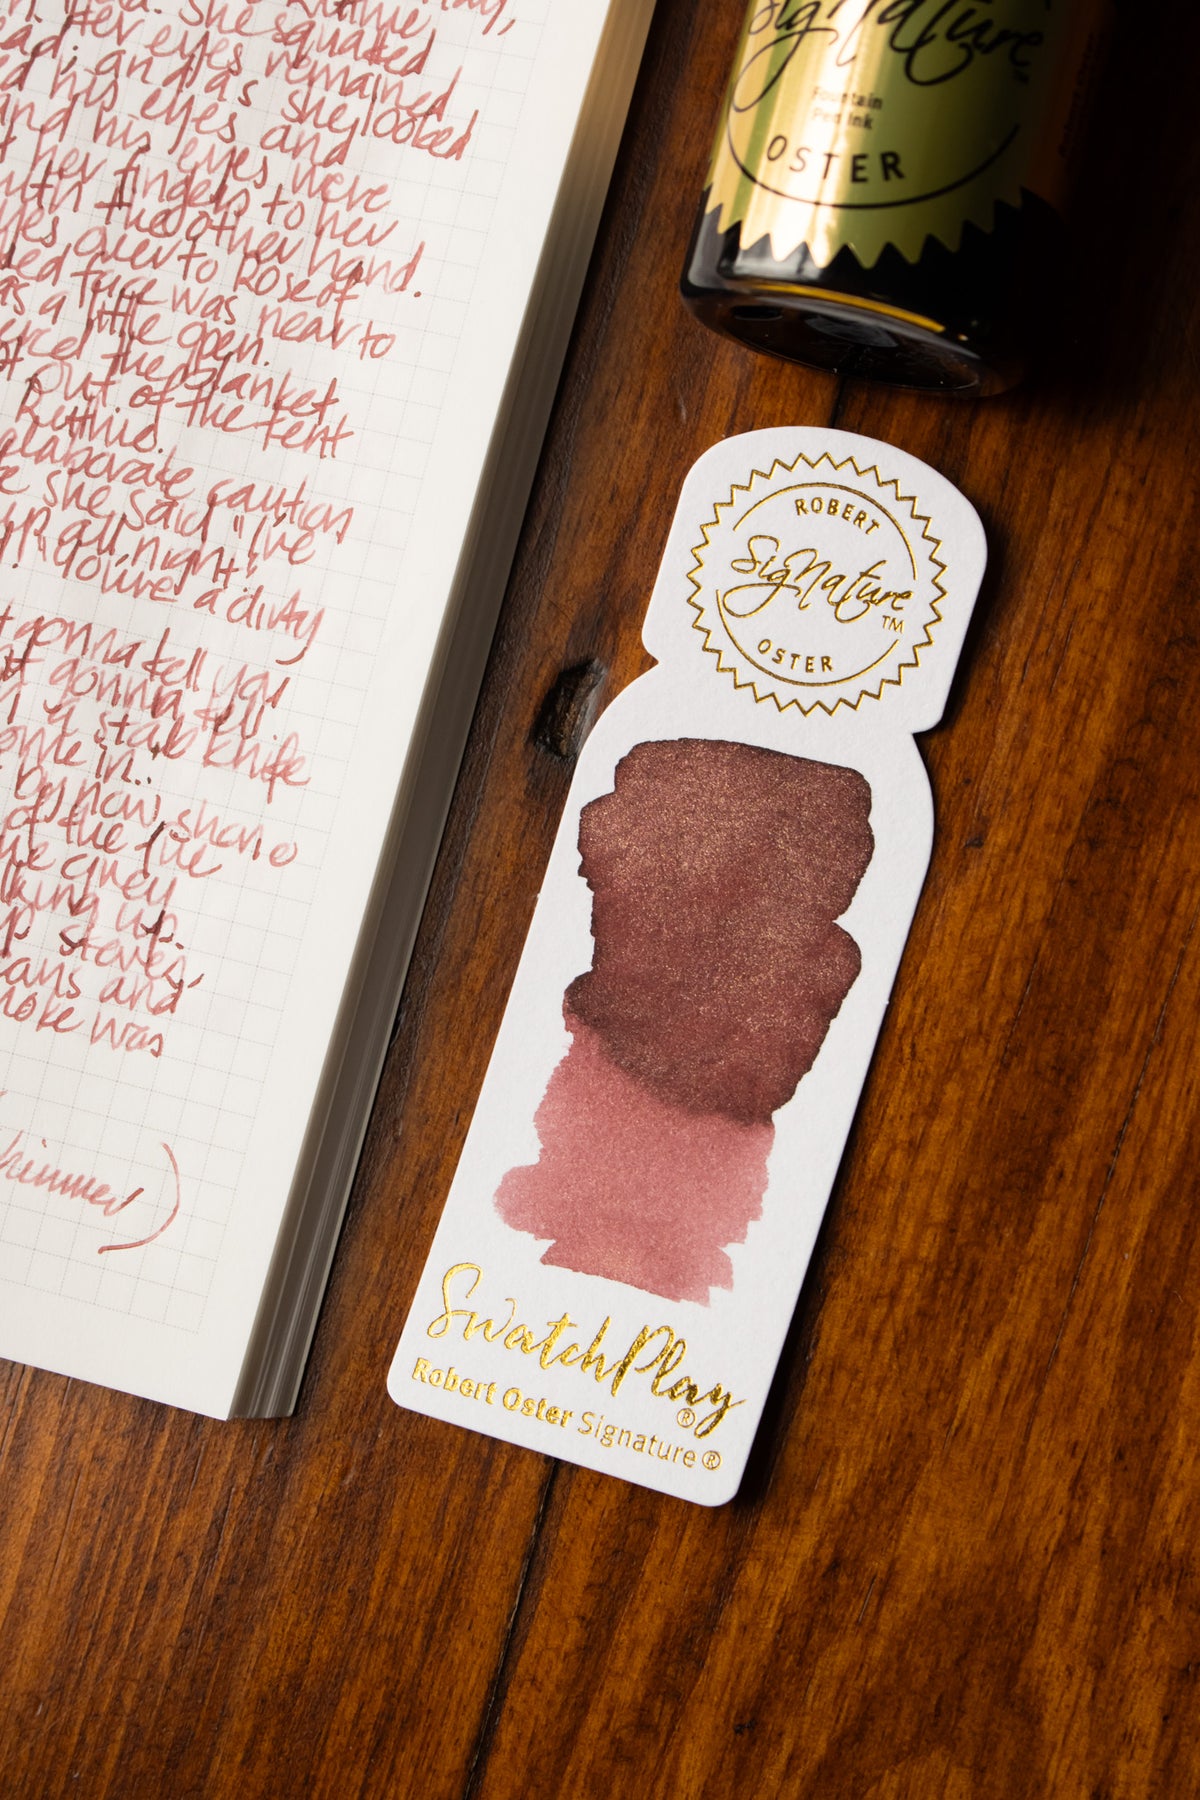 She squatted
eyes remained
and as she looked
his eyes and
and his eyes were
her fingers to her
with the other hand.
eyes over to Rose of
face was near to
as a little open.
the blanket
out of the tent
Ruthie.
elaborate caution
she said "I've
up all night!
You're a dirty
gonna tell you
gonna tell.
a stab knife
come in..
by now, shone
of the fire
the grey
up.
stoves,
and
smoke was
shimmer)
Signature
Fountain
Pen Ink
OSTER
ROBERT
SigNature
TM
OSTER
SwatchPlay
®
Robert Oster Signature®